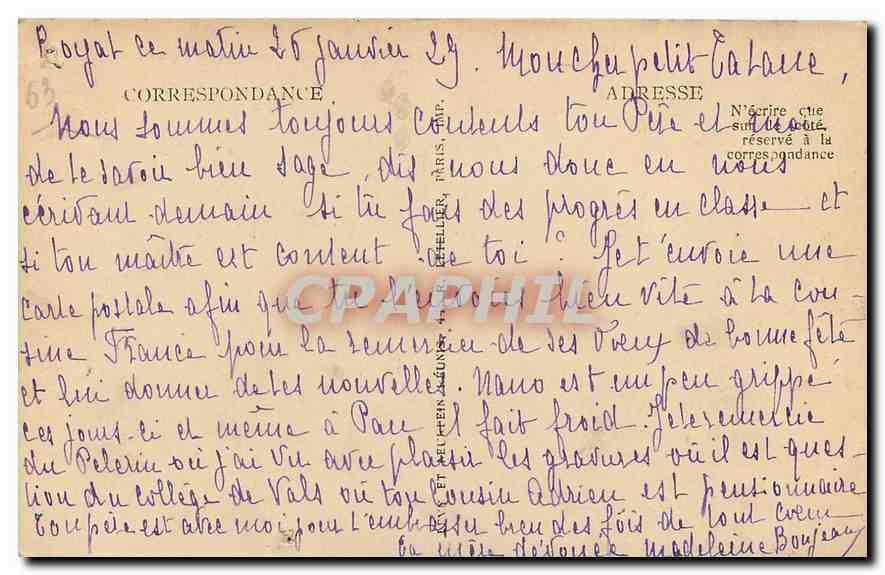 Royat ce matin 26 janvier 29. Mon cher petit Tatane,
63
CORRESPONDANCE
ADRESSE
N'écrire que
sur le côté
réservé à la
correspondance
Nous sommes toujours contents ton Père et moi
de te savoir bien sage, dis nous donc en nous
écrivant demain si tu fais des progrès en classe et
si ton maître est content de toi ? Je t'envoie une
carte postale afin que tu bien vite à ta cou-
sine France pour la remercier de ses vœux de bonne fête
et lui donner de tes nouvelles. Nano est un peu grippé
ces jours-ci et même à Pau il fait froid. Je te remercie
du Pelerin où j'ai vu avec plaisir les gravures où il est ques-
tion du collège de Vals où ton cousin Adrien est pensionnaire
Ton père est avec moi pour t'embrasser bien des fois de tout cœur
Ta mère dévouée Madeleine Boujean
LEVY ET NEURDEIN RÉUNIS, 44, R. LETELLIER, PARIS, IMP.
CPAPHIL